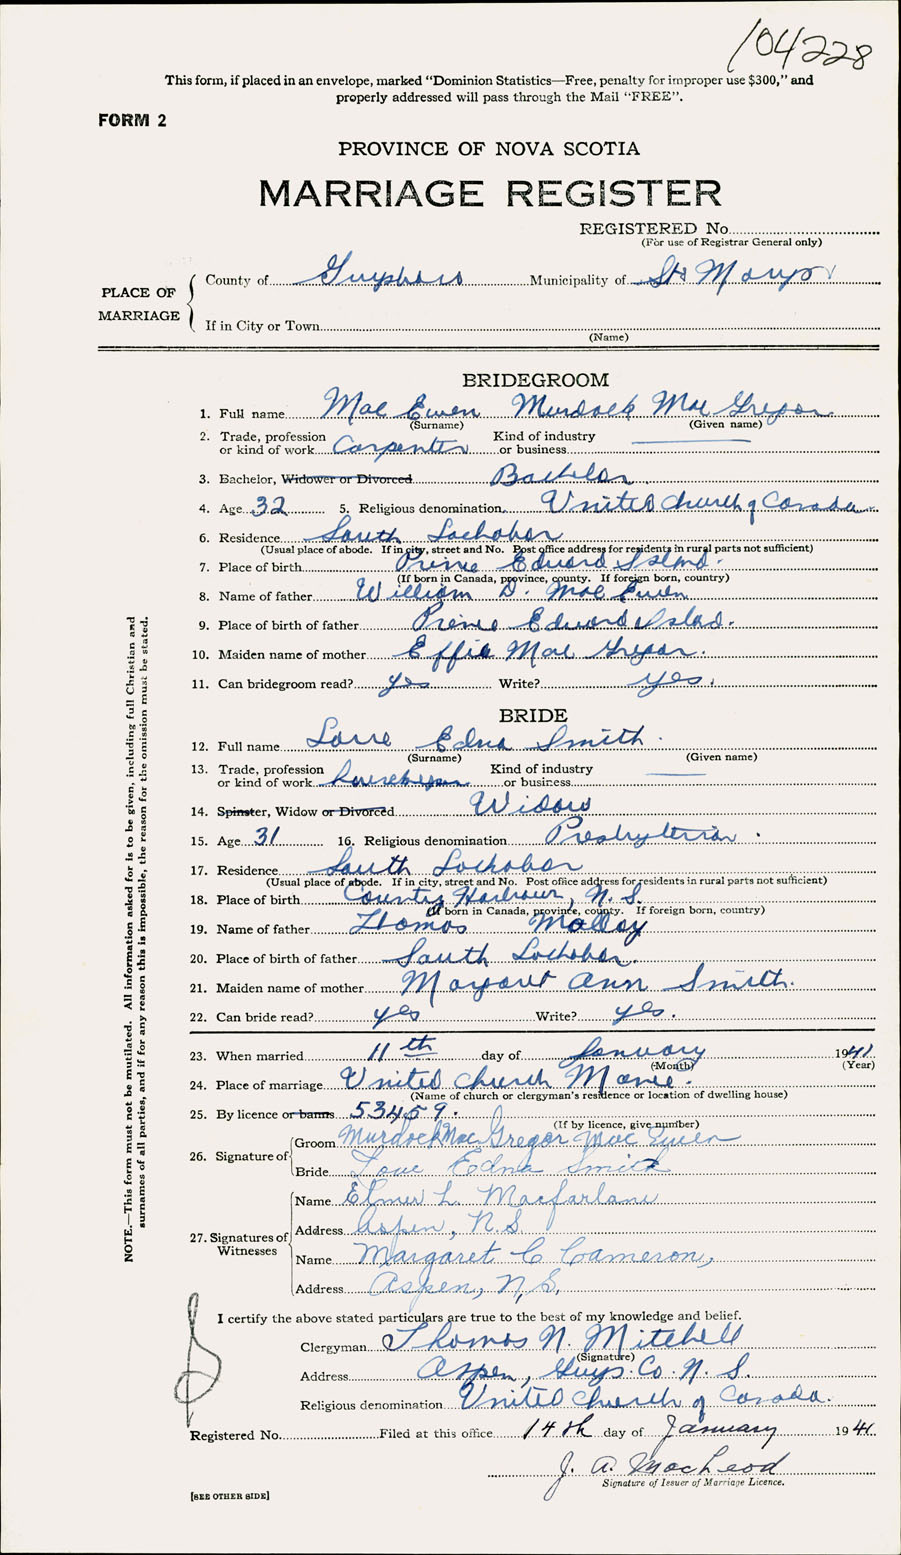 104228
This form, if placed in an envelope, marked “Dominion Statistics—Free, penalty for improper use $300,” and
properly addressed will pass through the Mail “FREE”.
FORM 2
PROVINCE OF NOVA SCOTIA
MARRIAGE REGISTER
REGISTERED No.
(For use of Registrar General only)
PLACE OF MARRIAGE
County of Guysboro Municipality of St Marys
If in City or Town
(Name)
BRIDEGROOM
1. Full name Mac Ewen Murdock Mac Gregor
(Surname) (Given name)
2. Trade, profession or kind of work Carpenter Kind of industry or business
3. Bachelor, Widower or Divorced Bachelor
4. Age 32 5. Religious denomination United Church of Canada
6. Residence South Lochaber
(Usual place of abode. If in city, street and No. Post office address for residents in rural parts not sufficient)
7. Place of birth Prince Edward Island.
(If born in Canada, province, county. If foreign born, country)
8. Name of father William D. Mac Ewen
9. Place of birth of father Prince Edward Island.
10. Maiden name of mother Effie Mac Gregor.
11. Can bridegroom read? yes Write? yes.
BRIDE
12. Full name Edna Smith
(Surname) (Given name)
13. Trade, profession or kind of work housekeeper Kind of industry or business
14. Spinster, Widow or Divorced Widow
15. Age 31 16. Religious denomination Presbyterian.
17. Residence South Lochaber
(Usual place of abode. If in city, street and No. Post office address for residents in rural parts not sufficient)
18. Place of birth Country Harbour, N. S.
(If born in Canada, province, county. If foreign born, country)
19. Name of father Thomas Malloy
20. Place of birth of father South Lochaber.
21. Maiden name of mother Margaret Ann Smith.
22. Can bride read? yes Write? yes.
23. When married 11th day of January 1941
(Month) (Year)
24. Place of marriage United Church Manse.
(Name of church or clergyman's residence or location of dwelling house)
25. By licence or banns 53459.
(If by licence, give number)
26. Signature of
Groom Murdock Mac Gregor Mac Ewen
Bride Edna Smith
27. Signatures of Witnesses
Name Elmer L. Macfarlane
Address Aspen, N.S
Name Margaret C Cameron,
Address Aspen, N.S.
I certify the above stated particulars are true to the best of my knowledge and belief.
Clergyman Thomas N. Mitchell
(Signature)
Address Aspen, Guys. Co. N. S.
Religious denomination United Church of Canada.
Registered No. Filed at this office 14th day of January 1941.
J. A. MacLeod
Signature of Issuer of Marriage Licence.
[SEE OTHER SIDE]
NOTE.—This form must not be mutilated. All information asked for is to be given, including full Christian and
surnames of all parties, and if for any reason this is impossible, the reason for the omission must be stated.